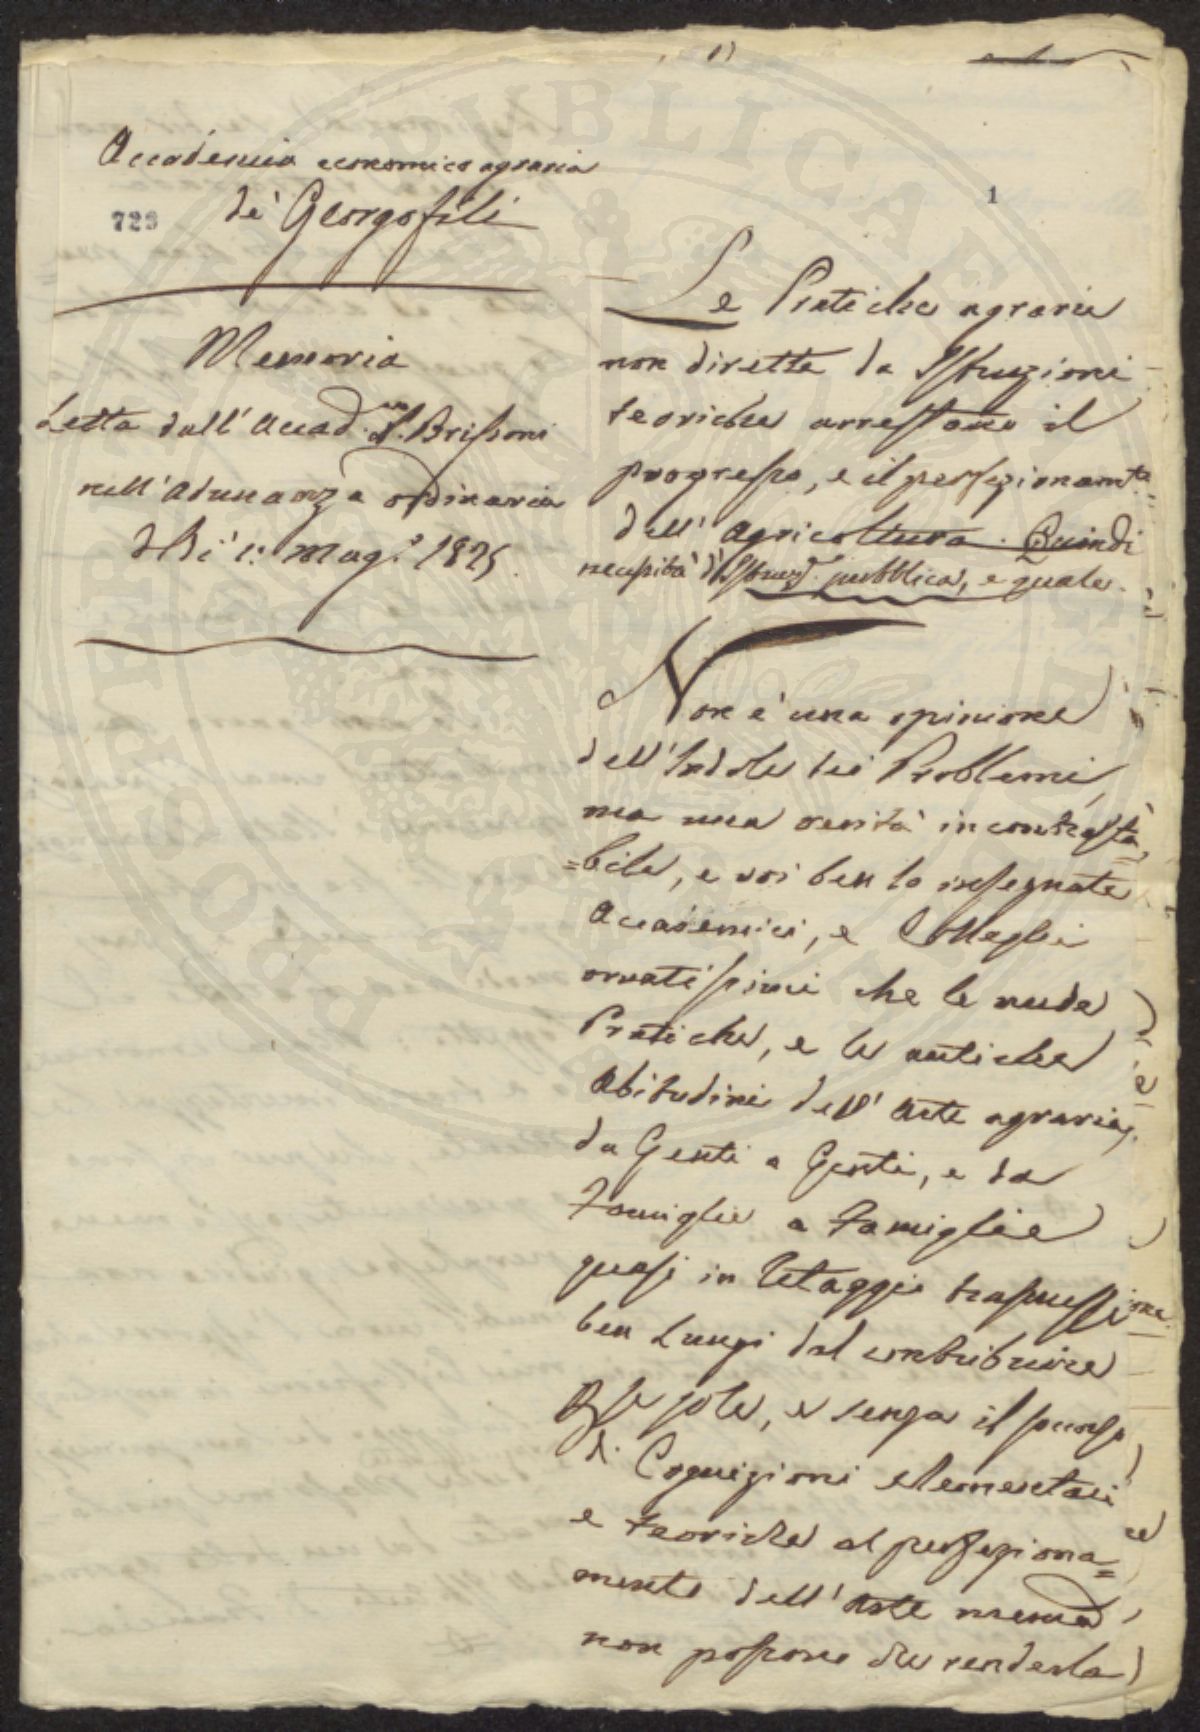 Accademia economico agraria
de' Georgofili
726
Memoria
Letta dall' Accad.
nell' Adunanza ordinaria
1: Mag.° 1825.
1
Le Pratiche agrarie
non dirette da Istruzioni
teoriche arrestano il
progresso, e il perfezionam.to
dell' Agricoltura. Quindi
necessità d'Istruz. pubblica, e quale.
Non è una opinione
dell' Indole dei Problemi,
ma una verità incontrastà=
=bile, e voi ben lo insegnate
Accademici, e Colleghi
ornatissimi che le nude
Pratiche, e le antiche
Abitudini dell' Arte agraria,
da Genti a Genti, e da
Famiglie a Famiglie
quasi in Retaggio trasmesse
ben Lungi dal contribuire
Esse sole, e senza il soccorso
di Cognizioni elementari
e teoriche al perfeziona=
mento dell' Arte
non possono che renderla